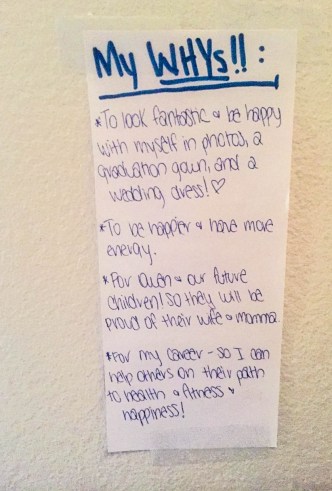 My WHYs!! :
*To look fantastic & be happy
with myself in photos, a
graduation gown, and a
wedding dress! ♡
*To be happier & have more
energy.
*For Owen & our future
children! So they will be
proud of their wife & momma.
*For my career - so I can
help others on their path
to health & fitness &
happiness!